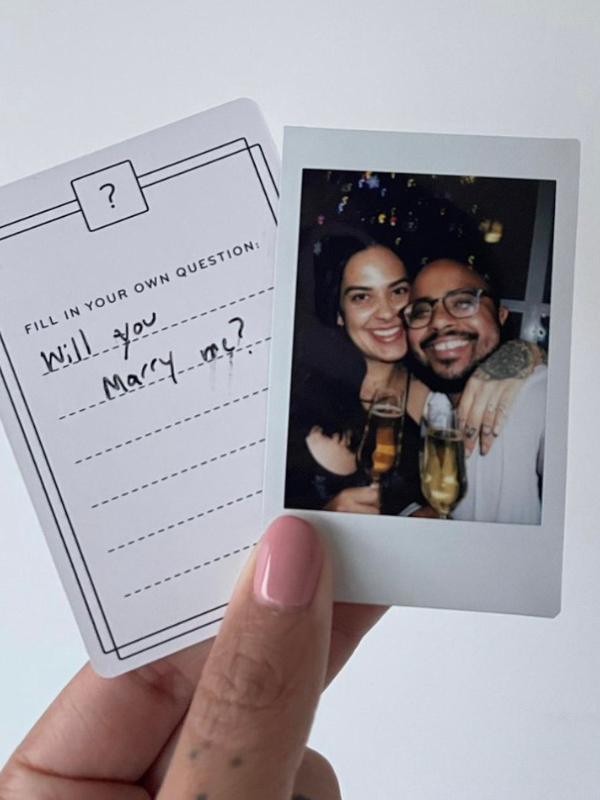 ?
FILL IN YOUR OWN QUESTION:
Will you
Marry me?